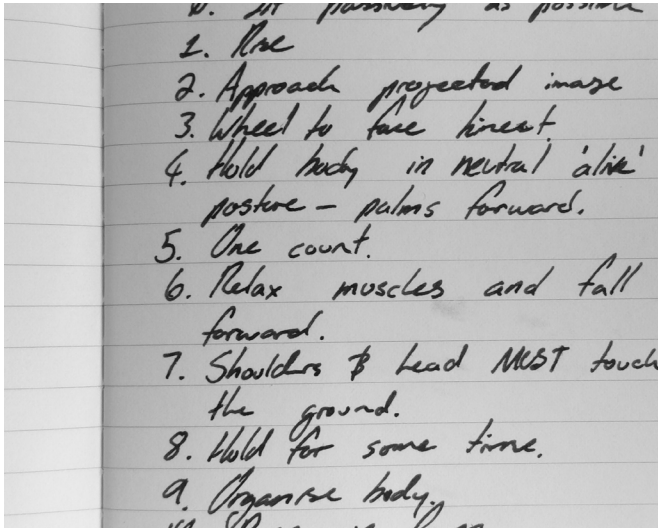 passively as possible
1. Rise
2. Approach projected image
3. Wheel to face
4. Hold body in neutral 'alive'
posture – palms forward.
5. One count.
6. Relax muscles and fall
forward.
7. Shoulders & head MUST touch
the ground.
8. Hold for some time.
9. Organise body.